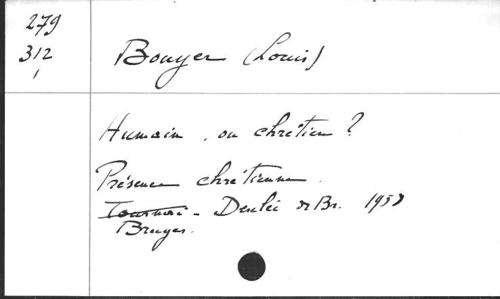 279
312
1
Bouyer (Louis)
Humain, ou chrétien ?
Présence chrétienne.
Tournai - Desclée de Br. 1958
Bruges.